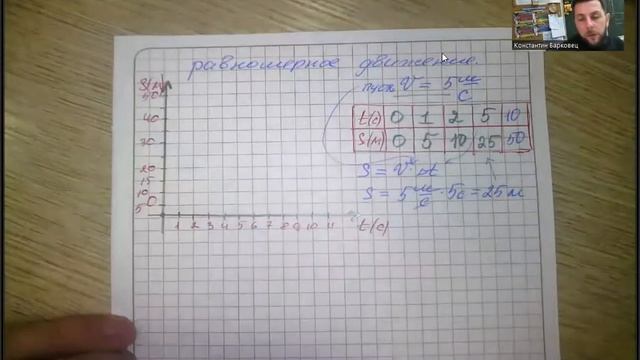 Константин Барковец
равномерное движение.
пусть V = 5 м/с
S(м)
50
40
30
20
15
10
5
0
t(c) 0 1 2 5 10
S(м) 0 5 10 25 50
S = V · Δt
S = 5 м/с · 5с = 25 м
1 2 3 4 5 6 7 8 9 10 11 t(c)